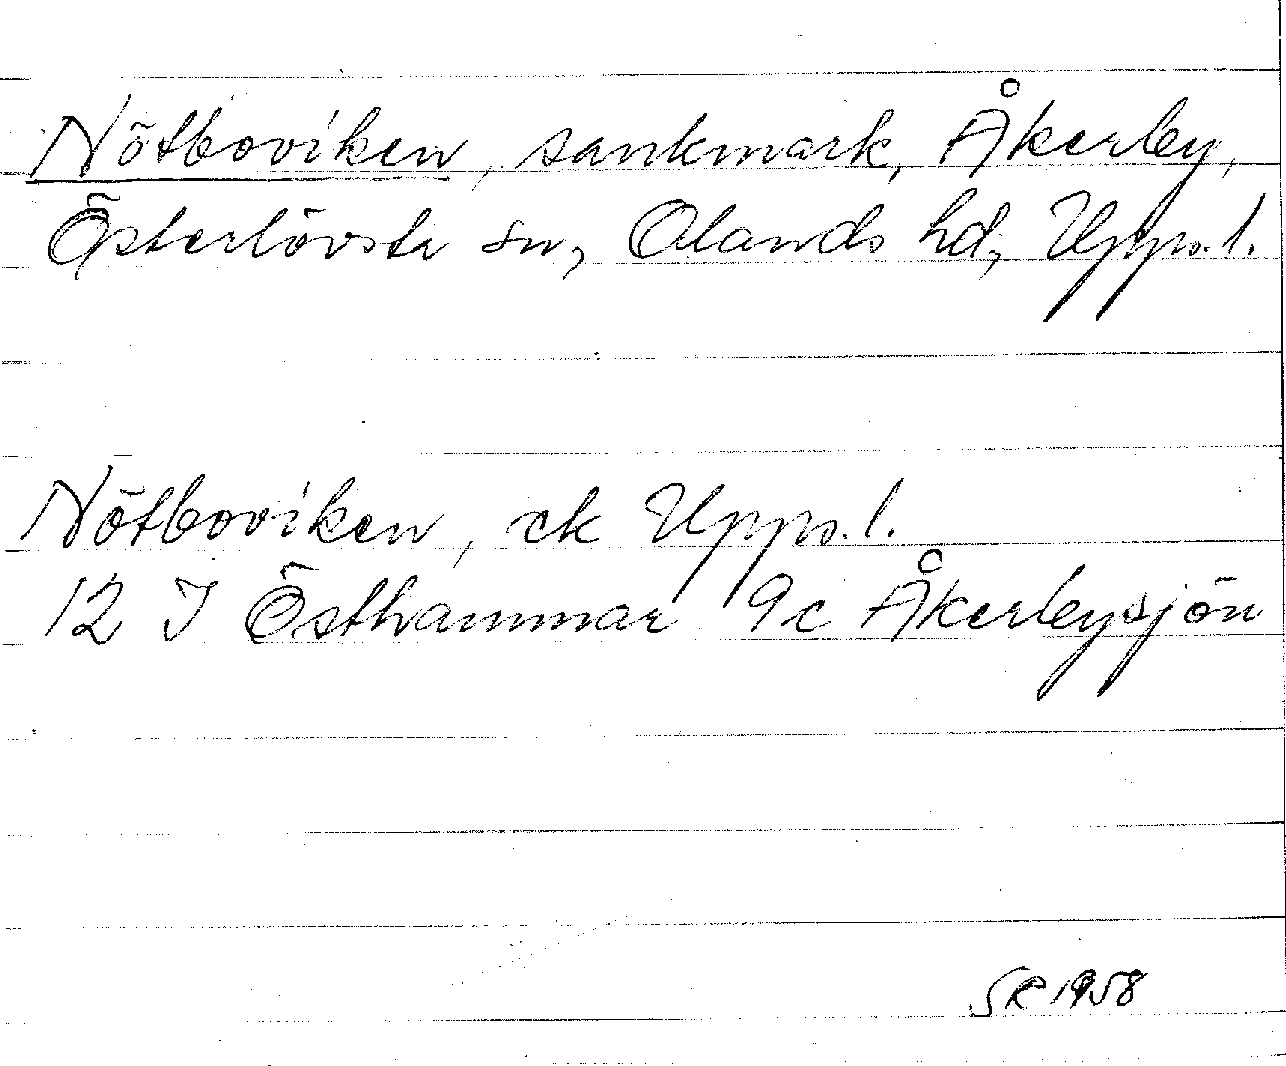 Nötboviken, sankmark, Åkerby,
Österlövsta sn, Olands hd, Upps. l.
Nötboviken, ek Upps. l.
12 I Östhammar 9c Åkerbysjön
SR 1958